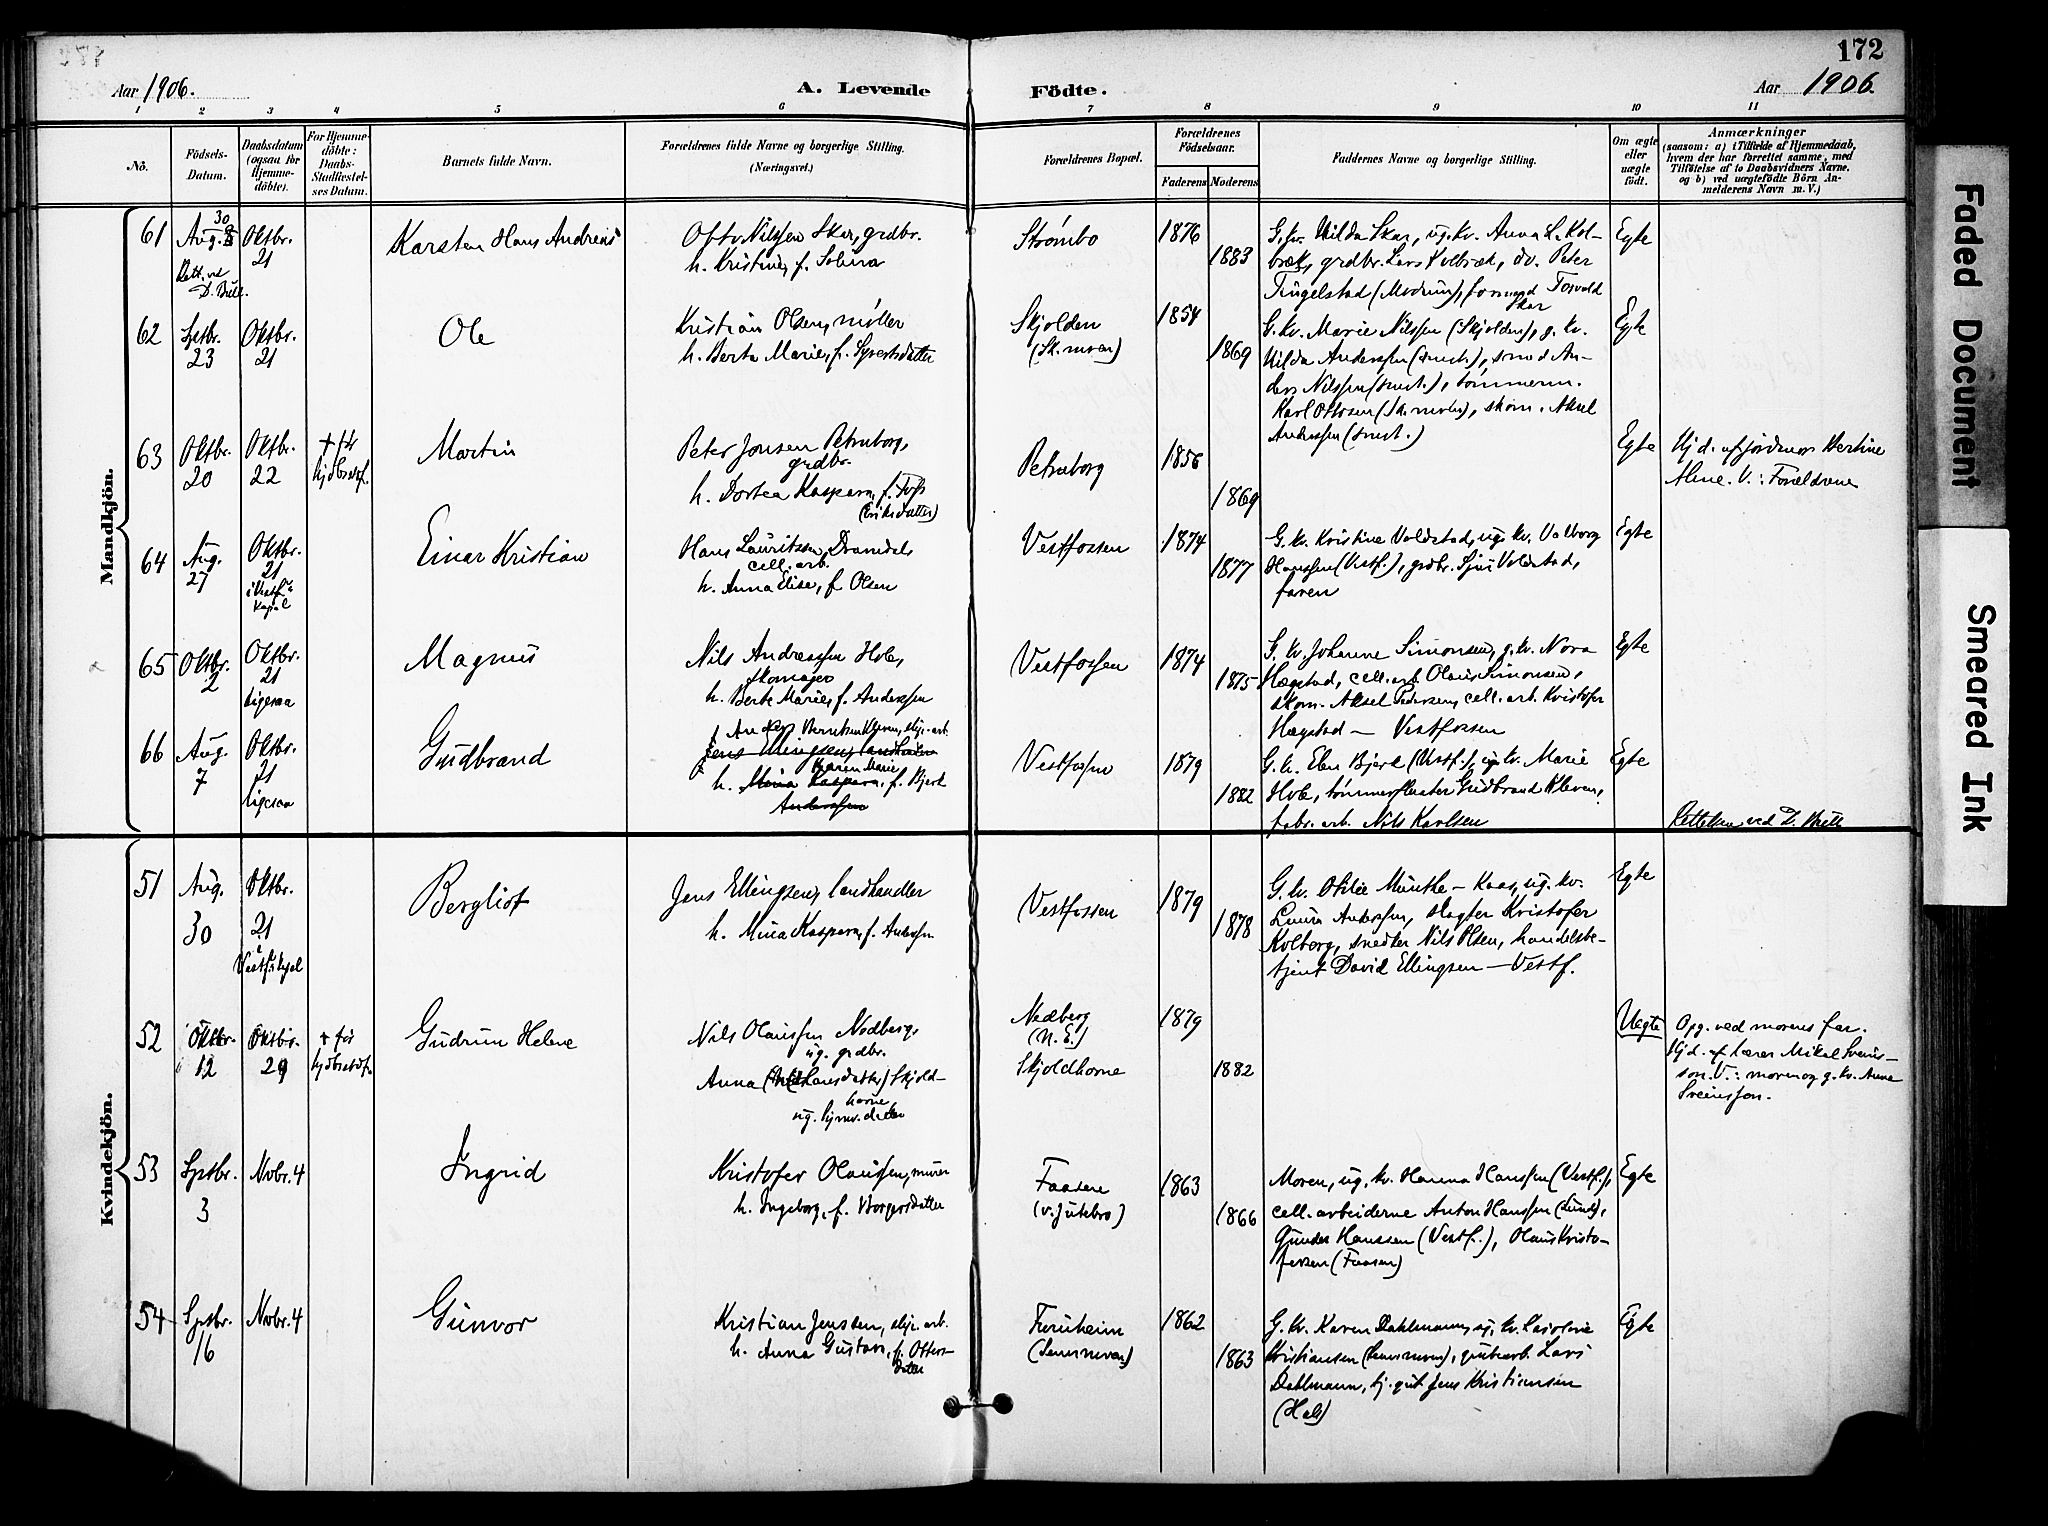 172
Aar 1906.
A. Levende Födte.
Aar 1906.
1 2 3 4 5 6 7 8 9 10 11
No.
Födsels-Datum.
Daabsdatum (ogsaa for Hjemmedöbte).
For Hjemmedöbte: Daabs-Stadfæstelses Datum.
Barnets fulde Navn.
Forældrenes fulde Navne og borgerlige Stilling. (Næringsvei.)
Forældrenes Bopæl.
Forældrenes Födselsaar.
Faderens Moderens
Faddernes Navne og borgerlige Stilling.
Om ægte eller uægte födt.
Anmærkninger
(saasom: a) i Tilfælde af Hjemmedaab,
hvem der har forrettet samme, med
Tilföielse af to Daabsvidners Navne,
og b) ved uægtefödte Börn Anmelderens Navn m. V.)
Mandkjön.
61
Aug. 30
Rett. ved D. Bull.
Oktbr. 21
Karsten Hans Andreas
Otto Nilssen Skar, grdbr.
h. Kristine, f. Solina
Strømbo
1876
1883
G. kv. Hilda Skar, ug. kv. Anna L. Kol-
bræk, grdbr. Lars Kolbræk, do. Peter
Tingelstad (Modum), formand Torvald
Skar
Egte
62
Sptbr. 23
Oktbr. 21
Ole
Kristian Olsen, møller
h. Berte Marie, f. Syvertsdatter
Skjolden
(Sk.moen)
1854
1869
G. kv. Marie Nilssen (Skjolden), g. kv.
Hilda Anderssen (smst.), smed An-
ders Nilssen (smst.), tømmerm.
Karl Ottosen (Sk.moen), skom. Aksel
Anderssen (smst.)
Egte
63
Oktbr. 20
Oktbr. 22
+ før
hjdbstdf.
Martin
Peter Jonsen Petersborg,
grdbr.
h. Dortea Kaspara, f. Tofs
(Eriksdatter)
Petersborg
1856
1869
Egte
Hj d. af jordmor Hertine
Alme. V.: Forældrene
64
Aug. 27
Oktbr. 21
i Vestf.s
kapel
Einar Kristian
Hans Lauritssen Dramdal,
cell. arb.
h. Anna Elise, f. Olsen
Vestfossen
1874
1877
G. kv. Kristine Voldstad, ug. kv. Valborg
Hanssen (Vestf.), grdbr. Sjur Voldstad,
faren
Egte
65
Oktbr. 2
Oktbr. 21
ligesaa
Magnus
Nils Anderssen Hvle,
skomager
h. Berte Marie, f. Anderssen
Vestfossen
1874
1875
G. kv. Johanne Simonsen, g. kv. Nora
Hægstad, cell. arb. Olaus Simonsen,
skom. Aksel Pedersen, cell. arb. Kristofer
Hægstad — Vestfossen
Egte
66
Aug. 7
Oktbr. 21
ligesaa
Gudbrand
Anders Berntsen Kleven, slip. arb.
Jens Ellingsen, landhandler
Karen Marie
h. Mina Kaspara, f. Bjerk
Anderssen
Vestfossen
1879
1882
G. k. Elen Bjerk (Vestf.), ug. kv. Marie
Hvle, tømmerfløter Gudbrand Kleven,
fabr. arb. Nils Karlsen
Egte
Rettelsen ved D. Bull
Kvindekjön.
51
Aug. 30
Oktbr. 21
i
Vestf.s kapel
Bergliot
Jens Ellingsen, landhandler
h. Mina Kaspara, f. Anderssen
Vestfossen
1879
1878
G. kv. Otilie Münthe-Kaas, ug. kv.
Laura Anderssen, slagter Kristofer
Kolberg, snedker Nils Olsen, handelsbe-
tjent David Ellingsen — Vestf.
Egte
52
Oktbr. 12
Oktbr. 29
+ før
hjdbstdf.
Gudrun Helene
Nils Olaussen Nedberg,
ug. grdbr.
Anna Hansdatter Skjold-
horne
ug. hjmv. datter
Nedberg
(N. E.)
Skjoldhorne
1879
1882
Uegte
Opg. ved morens far.
Hj d. af lærer Mikal Sveins-
son. V.: moren og g. kv. Anne
Sveinsson.
53
Sptbr. 3
Novbr. 4
Ingrid
Kristofer Olaussen, murer
h. Ingeborg, f. Borgersdatter
Faasen
(v. Jutebro)
1863
1866
Moren, ug. kv. Hanna Hanssen (Vestf.),
cell. arbeiderne Anton Hanssen (Lund),
Gunder Hanssen (Vestf.), Olaus Kristo-
fersen (Faasen)
Egte
54
Sptbr. 16
Novbr. 4
Gunvor
Kristian Jenssen, slip. arb.
h. Anna Gustava, f. Otters-
datter
Furuheim
(Semsmoen)
1862
1863
G. kv. Karen Dahlmann, ug. kv. Karoline
Kristiansen (Semsmoen), grubearb. Lars
Dahlmann, tj. gut Jens Kristiansen
(Hals)
Egte
Faded Document
Smeared Ink